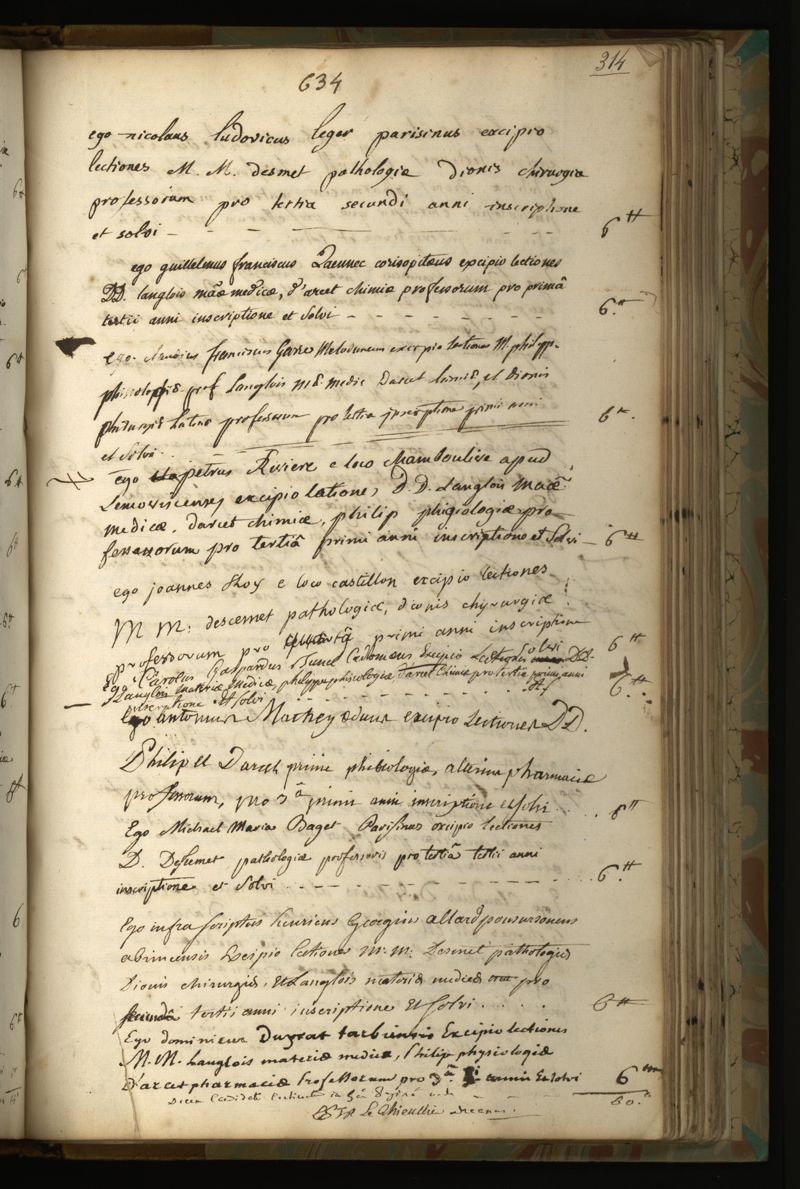 314
634
ego nicolaus ludovicus leger parisinus excipio
lectiones M. M. desmet pathologiæ Dionis chirurgiæ
professorum pro tertia secundi anni inscriptione
et solvi - - - - - - 6 tt
ego guillelmus franciscus Laennec corisopitæus excipio lectiones
DD. langlois māæ medicæ, d'arcet chimiæ professorum pro primâ
tertii anni inscriptione et solvi - - - - - - - 6. tt
ego franciscus Melodunum excipio lectiones M. philipp.
physiologiæ prof Langlois medic Darcet et Dionis
Latino professorum pro tertia inscriptione primi anni 6 tt.
et solvi.
ego petrus Riviere e loco Mamboulive apud
Lemovicenses excipio lationes D. D. Langlois maæ
medicæ, darcet chimiæ, philip phisiologiæ pro-
fessorum pro tertiâ primi anni inscriptione et Solvi - 6 tt
ego joannes Roy e loco castillon excipio lectiones
M M: descemet pathologiæ, dionis chyrurgiæ
professorum pro quartâ primi anni inscriptione
solvi 6 tt
Ego Carolus Gaspardus excipio Lectiones DD.
Langlois materiæ medicæ, philippe phisiologiæ, Darcet Chimiæ pro tertia primi anni
inscriptione et solvi - - - - - - 6. tt
Ego antonius Mathey æduus excipio Lectiones DD.
Philip et Darcet primi phisiologiæ, alterius pharmaciæ
professorum, pro 3â primi anni inscriptione et solvi . . . 6 tt
Ego Michael Maria Baget Parisinus excipio lectiones
D. Desemet pathologiæ professoris pro tertiâ tertii anni
inscriptione et solvi . . - - - - - - - 6. tt
Ego infra scriptus henricus Georgius allard
excipio lectiones M. M. Desmet pathologiæ
Dionis chirurgiæ, et Langlois materiæ medicæ pro
secundâ tertii anni inscriptione et solvi . . . . . 6 tt
Ego dominicus Duprat tarbiensis Excipio lectiones
M. M. Langlois materiæ medicæ, Philip physiologiæ
d'arcet pharmaciæ Professorum pro 3â anni et solvi 6
60.
Le Thieullier decanus.